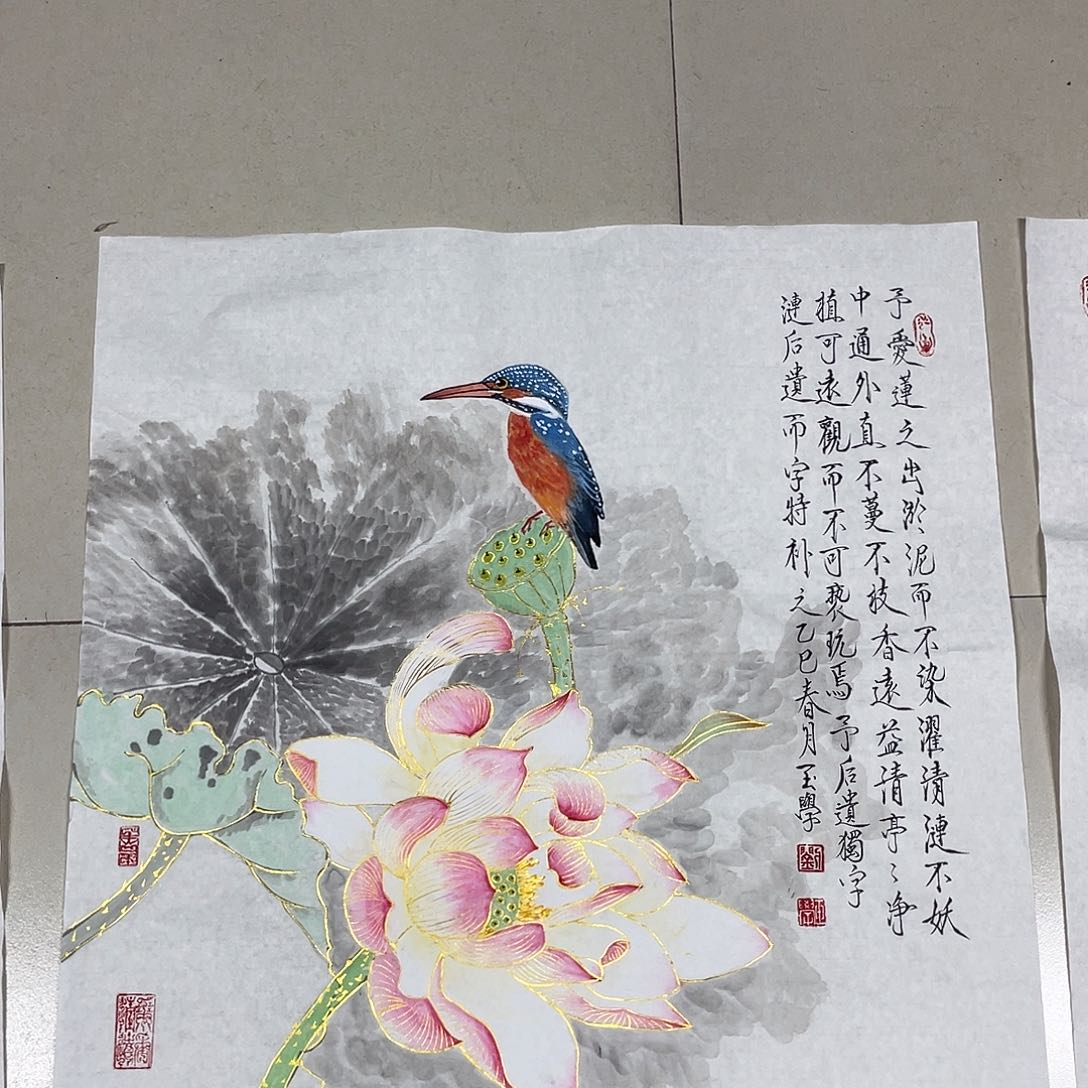 予愛蓮之出淤泥而不染濯清漣不妖
中通外直不蔓不枝香遠益清亭〻净
植可遠觀而不可亵玩焉予后遺獨字
漣后遺而字特补之乙巳春月玉學
劉